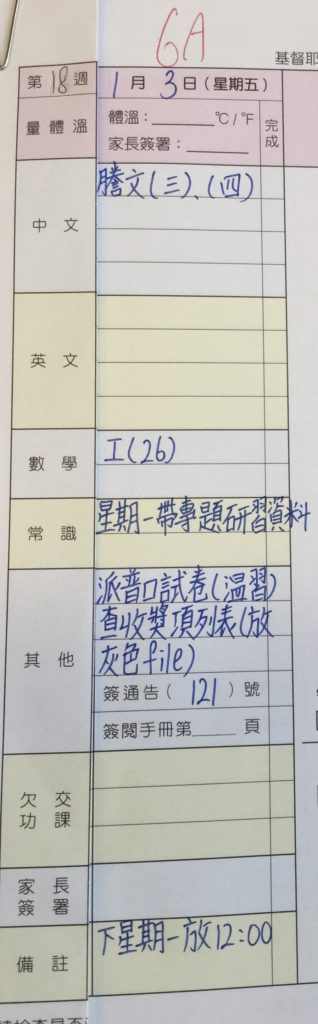 6A
基督耶
第18週 1月3日(星期五)
量體溫
體溫：______°C/°F
家長簽署：______
完成
中文
騰文(三)、(四)
英文
數學
工(26)
常識
星期一帶專題研習資料
其他
派普口試卷(溫習)
查收獎項列表(放
灰色file)
簽通告(121)號
簽閱手冊第____頁
欠交
功課
家長
簽署
備註
下星期一放12:00